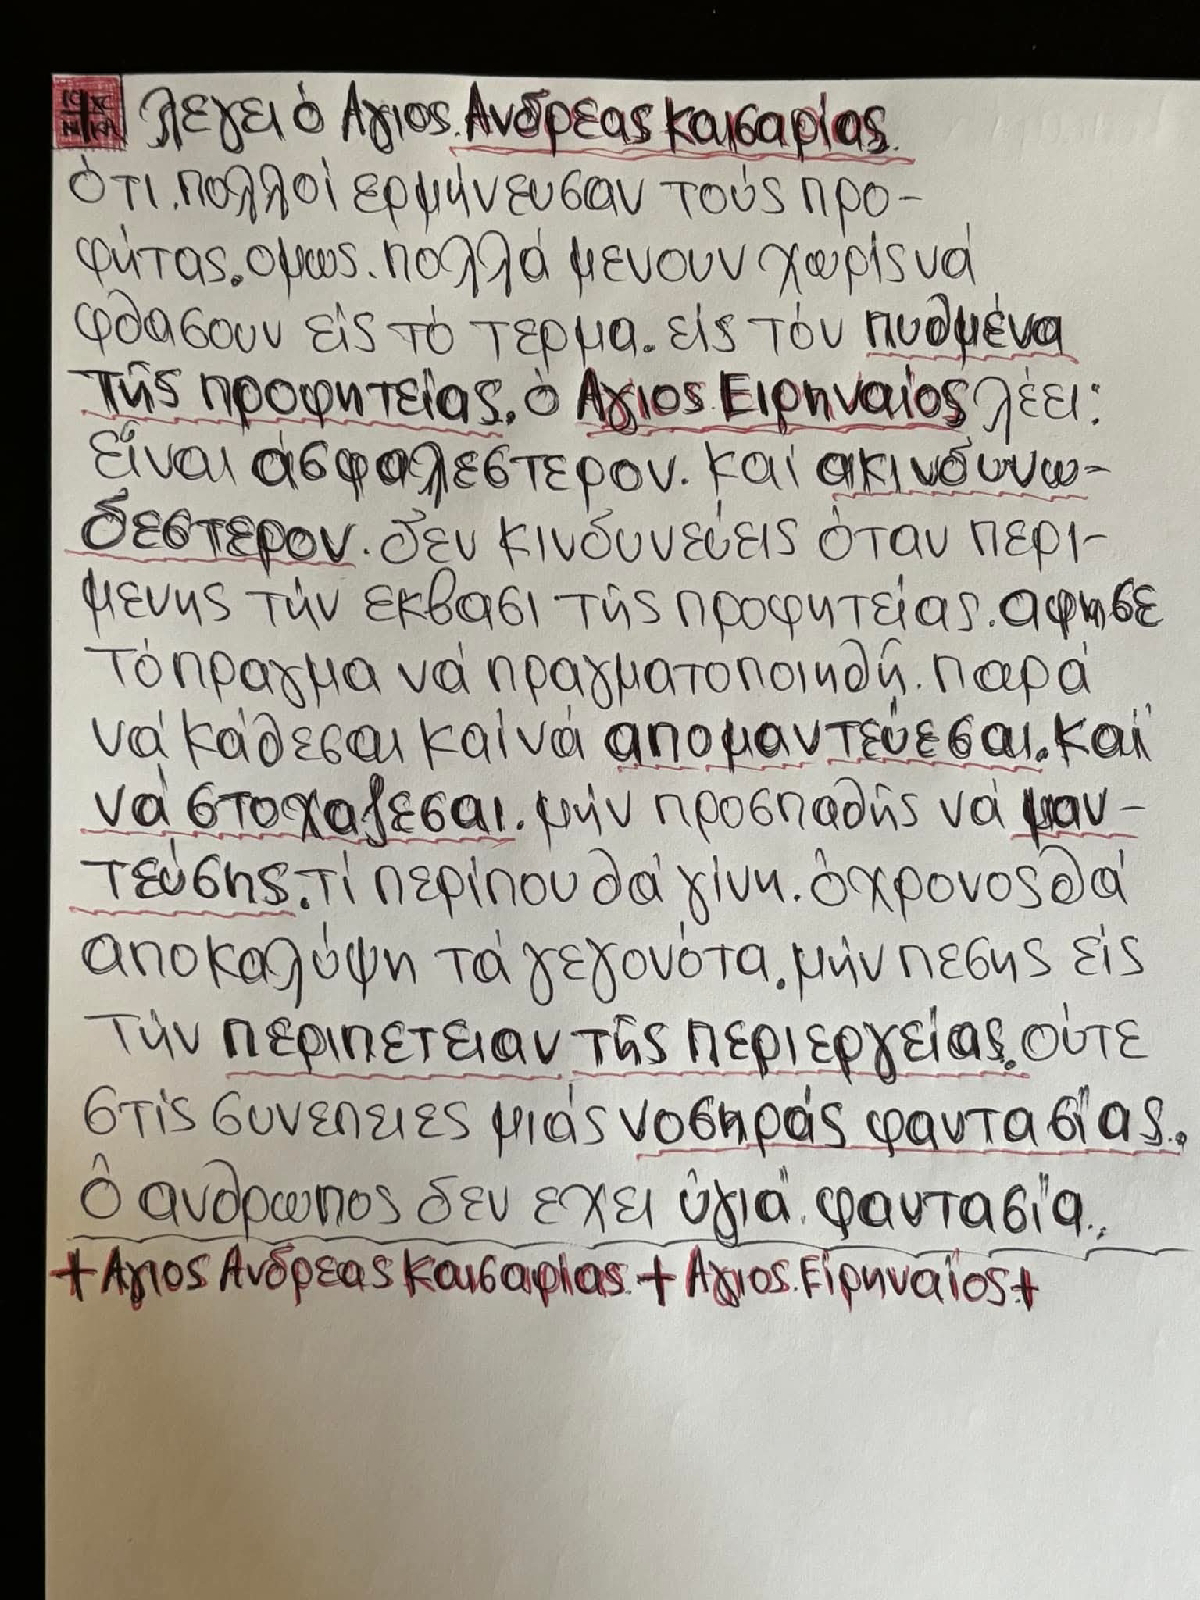 ΙC XC ΝΙ ΚΑ λεγει ὁ Αγιος. Ανδρεας Καισαρίας.
Ότι. πολλοί ερμήνευσαν τούς προ-
φήτας. ομως. πολλά μενουν χωρίς νά
φθασουν είς τό τερμα. είς τόν πυθμένα
τῆς προφητείας. ὁ Αγιος Ειρηναίος λέει:
Είναι ἀσφαλεστερον. και ακινδυνω-
δεστερον. δεν κινδυνεύεις ὁταν περι-
μενης τήν εκβασι τῆς προφητείας. αφησε
τό πραγμα νά πραγματοποιηθῆ. παρά
νά κάθεσαι καί νά απομαντεύεσαι. καί
νά στοχαζεσαι. μήν προσπαθῆς νά μαν-
τεύσης. τί περίπου θά γίνη. ὁ χρονος θά
αποκαλύψη τά γεγονότα. μήν πεσης είς
τήν περιπετειαν τῆς περιεργείας. ούτε
στίς συνεπειες μιάς νοσηράς φαντασίας.
Ὁ ανθρωπος δεν εχει ὑγιά. φαντασία..
+ Αγιος Ανδρεας Καισαρίας. + Αγιος. Είρηναίος +